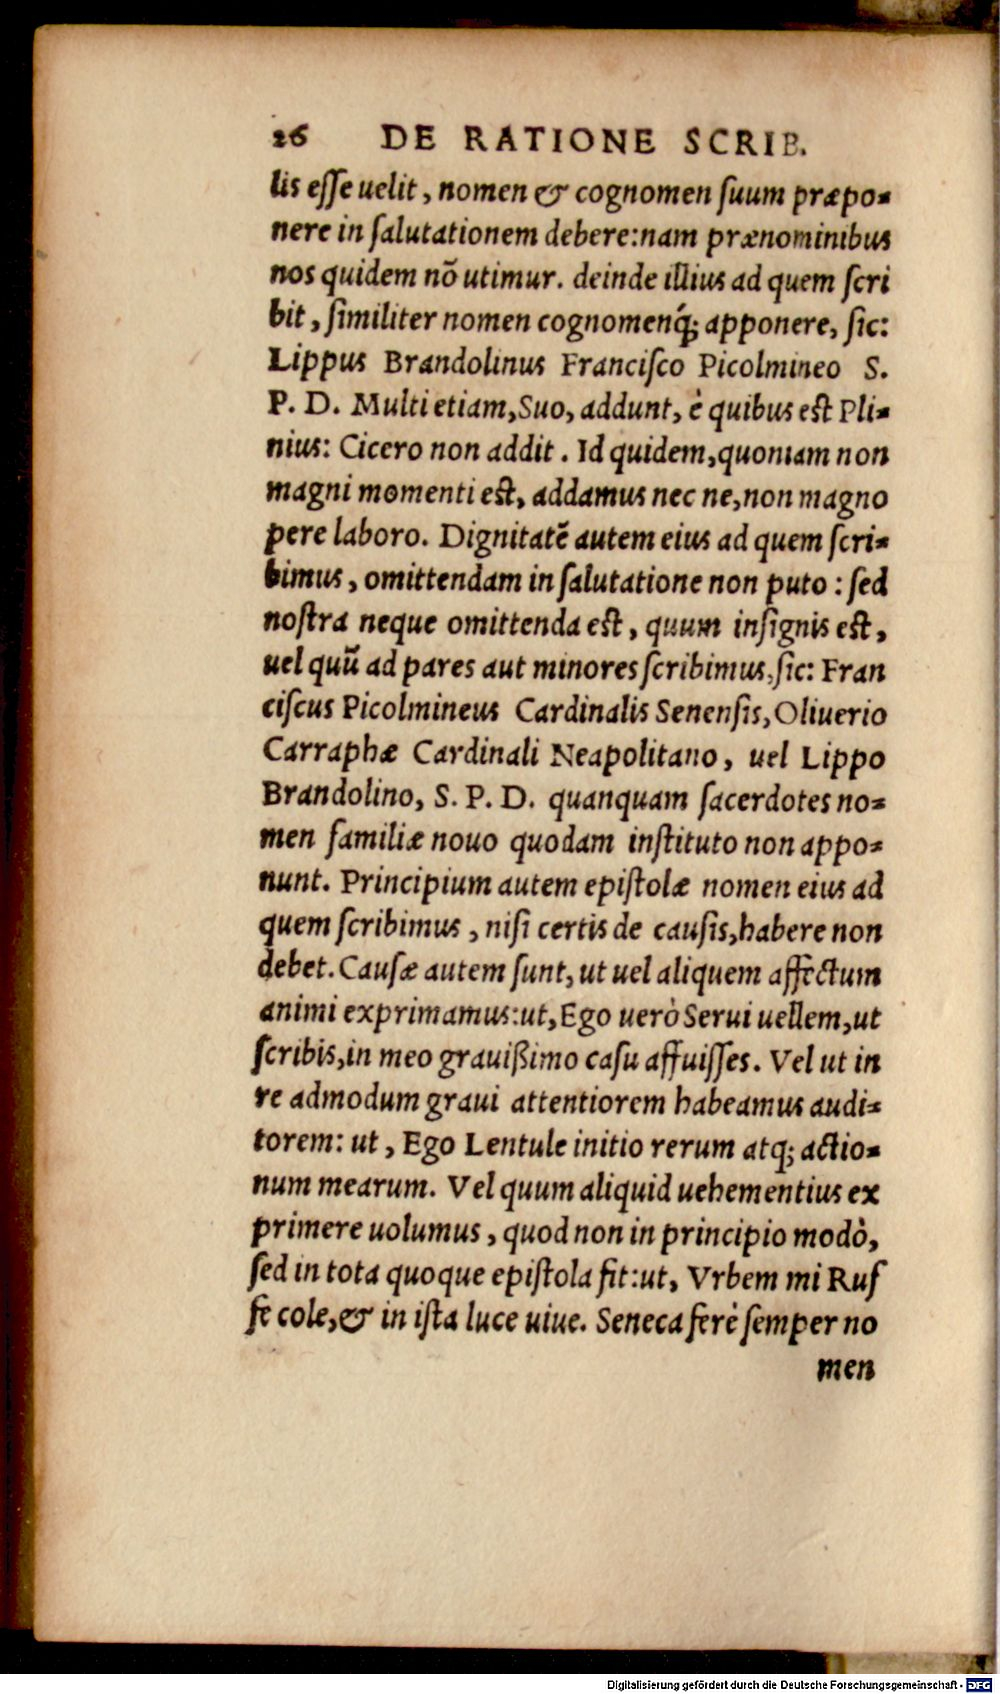 26 DE RATIONE SCRIB.
lis esse uelit, nomen & cognomen suum præpo-
nere in salutationem debere: nam prænominibus
nos quidem nō utimur. deinde illius ad quem scri
bit, similiter nomen cognomenq́; apponere, sic:
Lippus Brandolinus Francisco Picolmineo S.
P. D. Multi etiam, Suo, addunt, è quibus est Pli-
nius: Cicero non addit. Id quidem, quoniam non
magni momenti est, addamus nec ne, non magno
pere laboro. Dignitatē autem eius ad quem scri-
bimus, omittendam in salutatione non puto: sed
nostra neque omittenda est, quum insignis est,
uel quū ad pares aut minores scribimus, sic: Fran
ciscus Picolmineus Cardinalis Senensis, Oliuerio
Carraphæ Cardinali Neapolitano, uel Lippo
Brandolino, S. P. D. quanquam sacerdotes no-
men familiæ nouo quodam instituto non appo-
nunt. Principium autem epistolæ nomen eius ad
quem scribimus, nisi certis de causis, habere non
debet. Causæ autem sunt, ut uel aliquem affectum
animi exprimamus: ut, Ego uerò Serui uellem, ut
scribis, in meo grauißimo casu affuisses. Vel ut in
re admodum graui attentiorem habeamus audi-
torem: ut, Ego Lentule initio rerum atq; actio-
num mearum. Vel quum aliquid uehementius ex
primere uolumus, quod non in principio modò,
sed in tota quoque epistola fit: ut, Vrbem mi Ruf
fe cole, & in ista luce uiue. Seneca ferè semper no
men
Digitalisierung gefördert durch die Deutsche Forschungsgemeinschaft - DFG